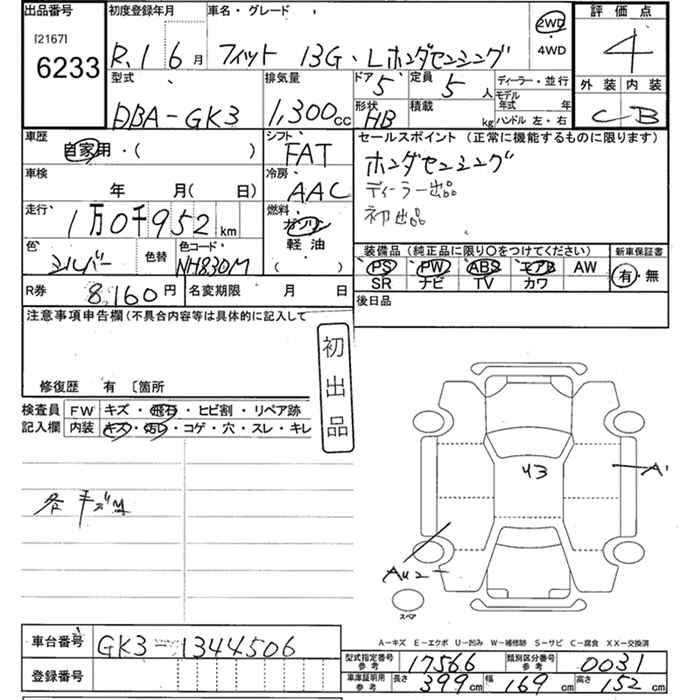 出品番号 初度登録年月 車名・グレード 評価点
[2167]
6233
R.1 6月 フィット 13G・Lホンダセンシング 2WD 4
4WD
型式 排気量 ドア 定員 ディーラー・並行 外装 内装
DBA-GK3 1,300cc 5 5人 モデル年式 年 C B
形状 積載 kg ハンドル 左・右
HB
車歴 シフト セールスポイント(正常に機能するものに限ります)
自家用・( ) FAT ホンダセンシング
車検 冷房 ディーラー出品
年 月( 日) AAC 初出品
走行 燃料
1万0千952km ガソリン
軽油
( )
色 色替 色コード 装備品(純正品に限り○をつけてください) 新車保証書
シルバー NH830M PS PW ABS エアB AW 有・無
SR ナビ TV カワ
R券 8,160円 名変期限 月 日 後日品
注意事項申告欄(不具合内容等は具体的に記入して
初出品
修復歴 有 〔箇所
検査員 FW キズ・飛石・ヒビ割・リペア跡
記入欄 内装 キズ・汚レ・コゲ・穴・スレ・キレ
各キズ
43
A1
AU2
スペア
A-キズ E-エクボ U-凹み W-補修跡 S-サビ C-腐食 XX-交換済
車台番号 GK3-1344506
登録番号
型式指定番号 参考 17566 類別区分番号 参考 0031
車庫証明用 参考 長さ 399cm 幅 169cm 高さ 152cm